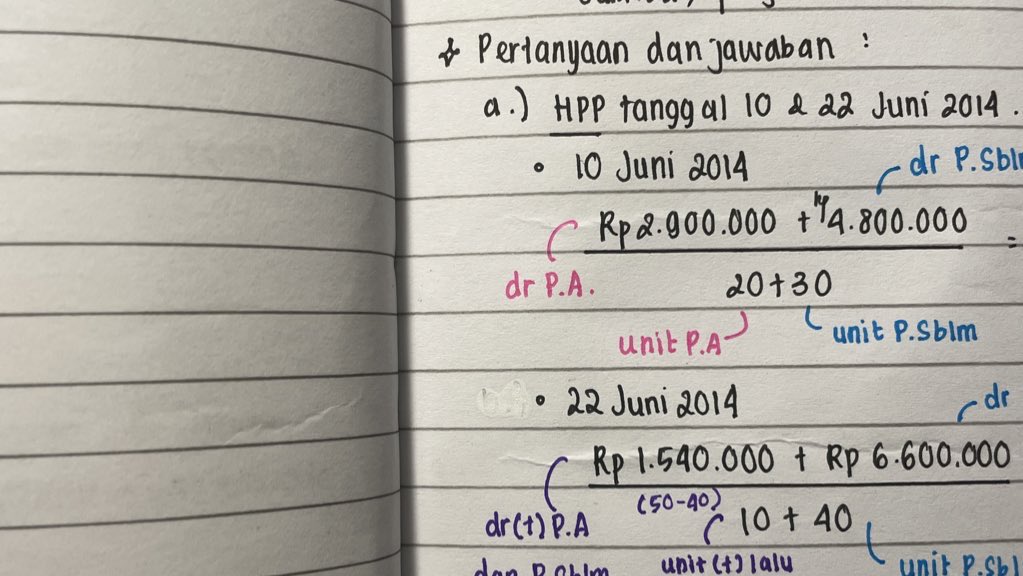 ✧ Pertanyaan dan jawaban :
a.) HPP tanggal 10 & 22 Juni 2014.
• 10 Juni 2014
dr P.Sblm
Rp 2.900.000 + Rp 4.800.000 =
dr P.A.
20 + 30
unit P.A
unit P.Sblm
• 22 Juni 2014
dr
Rp 1.540.000 + Rp 6.600.000
(50-40)
dr (t) P.A
10 + 40
dan P.Sblm
unit (t) lalu
unit P.Sbl